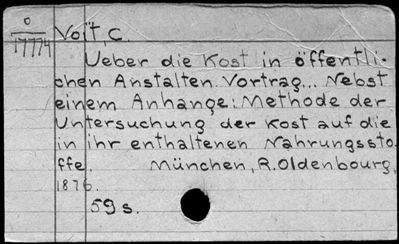 0
17774
Voit C.
Ueber die Kost in öffentli-
chen Anstalten. Vortrag... Nebst
einem Anhange: Methode der
Untersuchung der Kost auf die
in ihr enthaltenen Nahrungssto
ffe. München, R. Oldenbourg,
1876.
59 s.